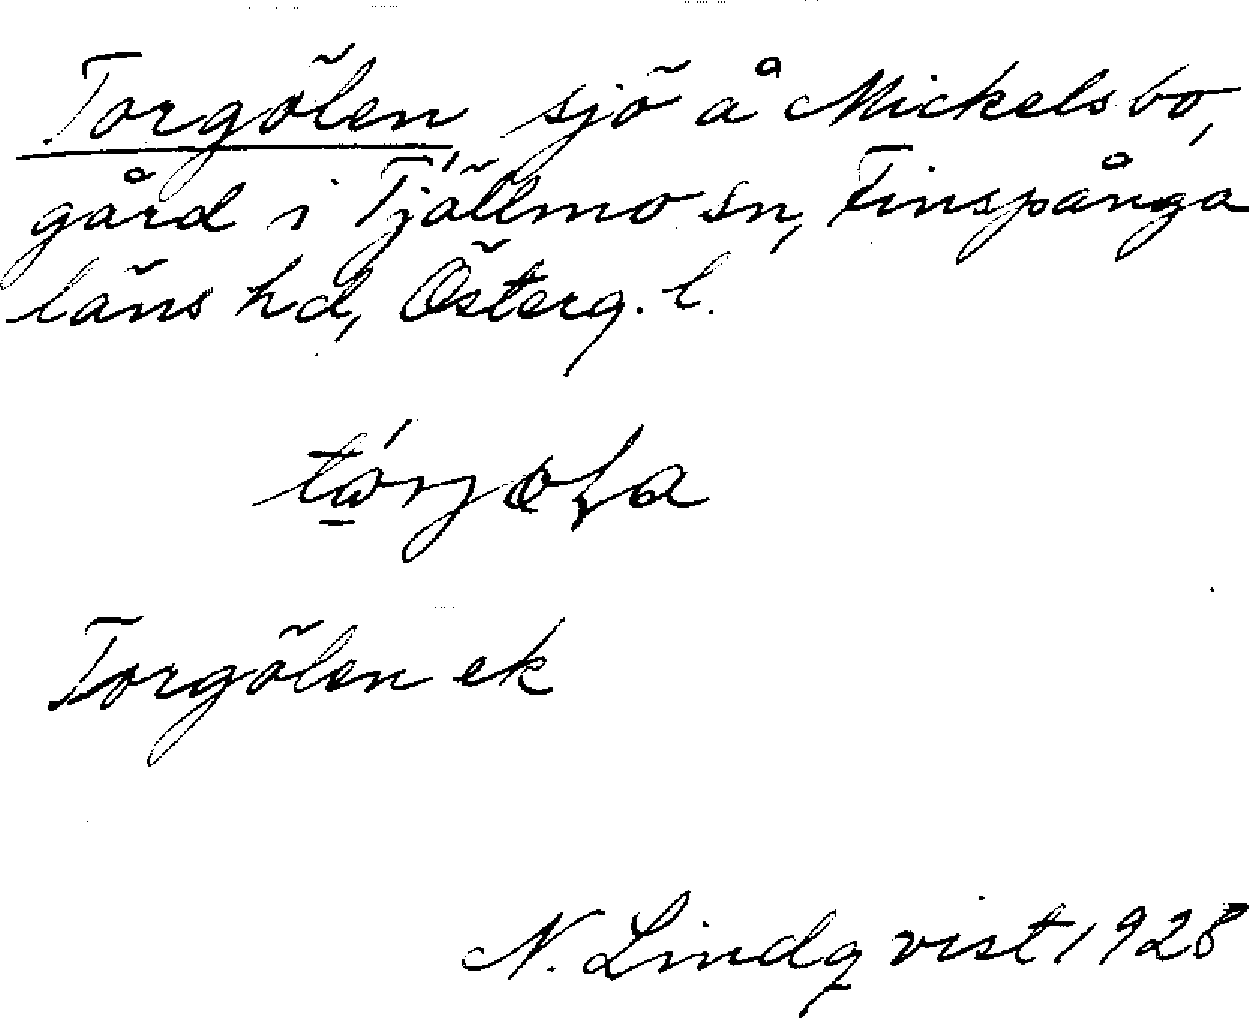 Torgölen, sjö å Mickelsbo,
gård i Tjällmo sn, Finspånga
läns hd, Österg. l.
Torgölen ek
N. Lindqvist 1928